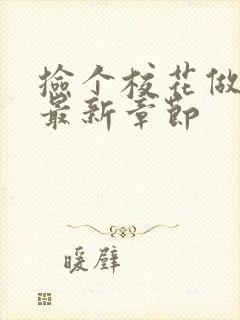 捡个校花做
最新章节
暖壁